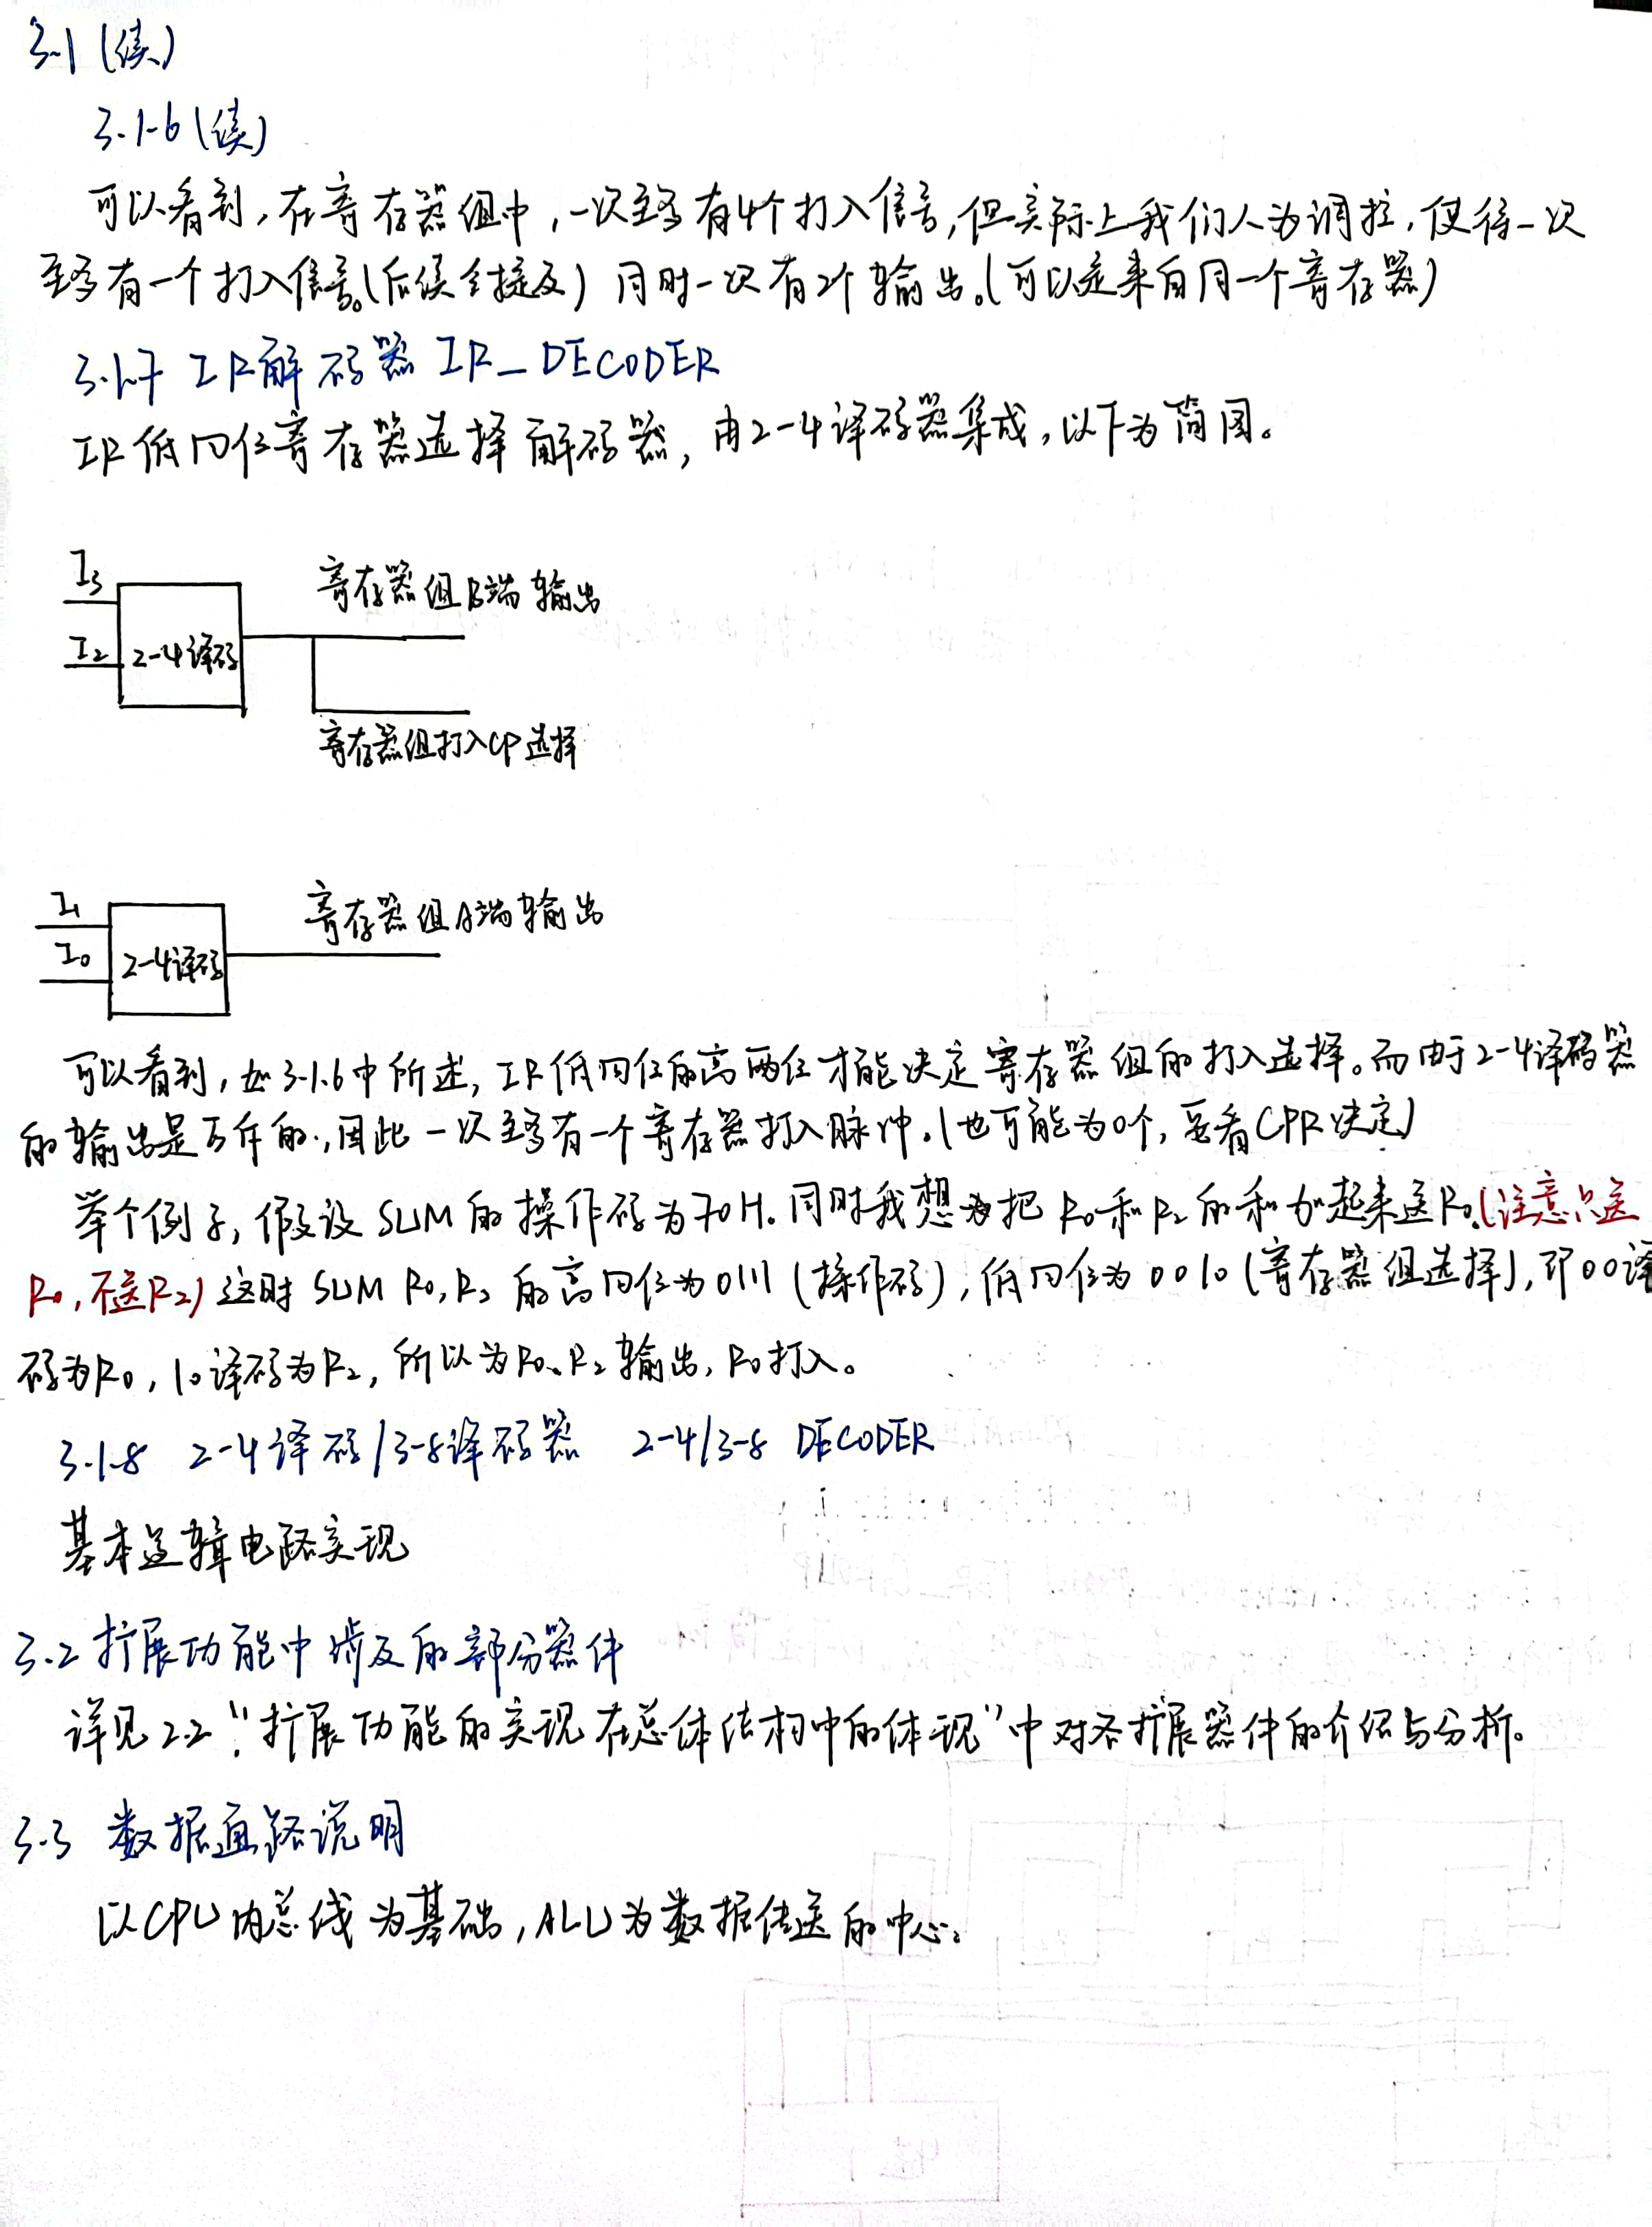 3.1 (续)
3.1.6 (续)
可以看到，在寄存器组中，一次至多有4个打入信号，但实际上我们人为调控，使得一次
至多有一个打入信号。(后续会提及) 同时一次有2个输出。(可以是来自同一个寄存器)
3.1.7 IR解码器 IR_DECODER
IR低四位寄存器选择解码器，由2-4译码器集成，以下为简图。
I3
寄存器组B端输出
I2
2-4译码
寄存器组打入CP选择
I1
寄存器组A端输出
I0
2-4译码
可以看到，如3.1.6中所述，IR低四位的高两位才能决定寄存器组的打入选择。而由于2-4译码器
的输出是互斥的，因此一次至多有一个寄存器打入脉冲。(也可能为0个，要看CPR决定)
举个例子，假设SUM的操作码为70H。同时我想把R0和R2的和加起来送R0。(注意只送
R0，不送R2) 这时SUM R0，R2的高四位为0111 (操作码)，低四位为0010 (寄存器组选择)，即00译
码为R0，10译码为R2，所以为R0、R2输出，R0打入。
3.1.8 2-4译码/3-8译码器 2-4/3-8 DECODER
基本逻辑电路实现
3.2 扩展功能中涉及的部分器件
详见2.2“扩展功能的实现在总体结构中的体现”中对各扩展器件的介绍与分析。
3.3 数据通路说明
以CPU内总线为基础，ALU为数据传送的中心。